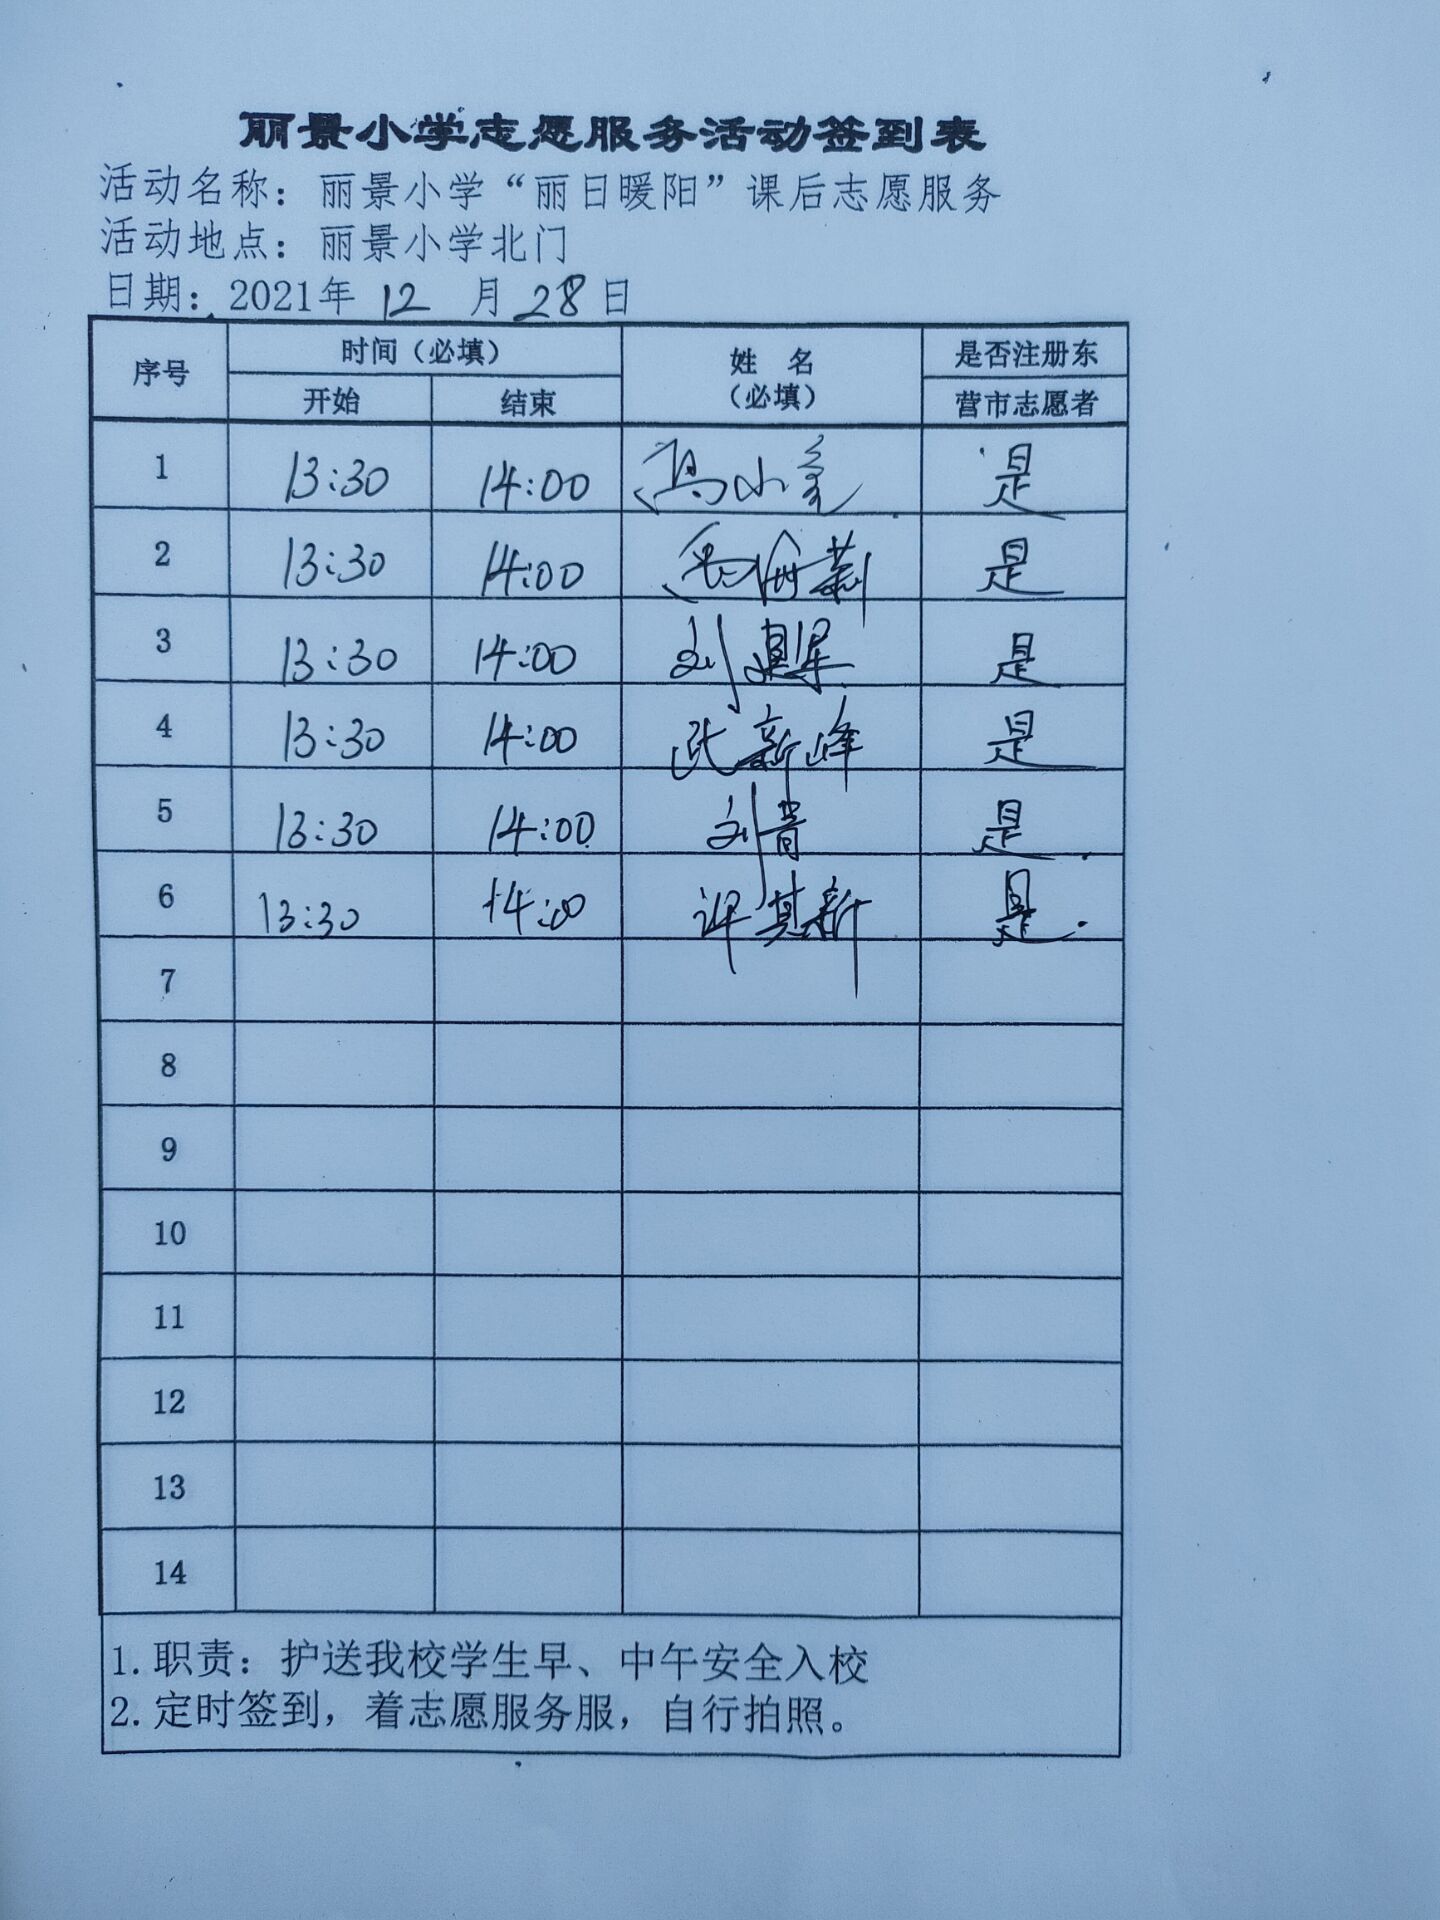 丽景小学志愿服务活动签到表
活动名称：丽景小学“丽日暖阳”课后志愿服务
活动地点：丽景小学北门
日期：2021年 12 月 28 日
序号 时间（必填） 姓 名（必填） 是否注册东营市志愿者
开始 结束
1 13:30 14:00 冯小 是
2 13:30 14:00 是
3 13:30 14:00 刘 是
4 13:30 14:00 张新峰 是
5 13:30 14:00 刘 是
6 13:30 14:00 其新 是.
7
8
9
10
11
12
13
14
1.职责：护送我校学生早、中午安全入校
2.定时签到，着志愿服务服，自行拍照。